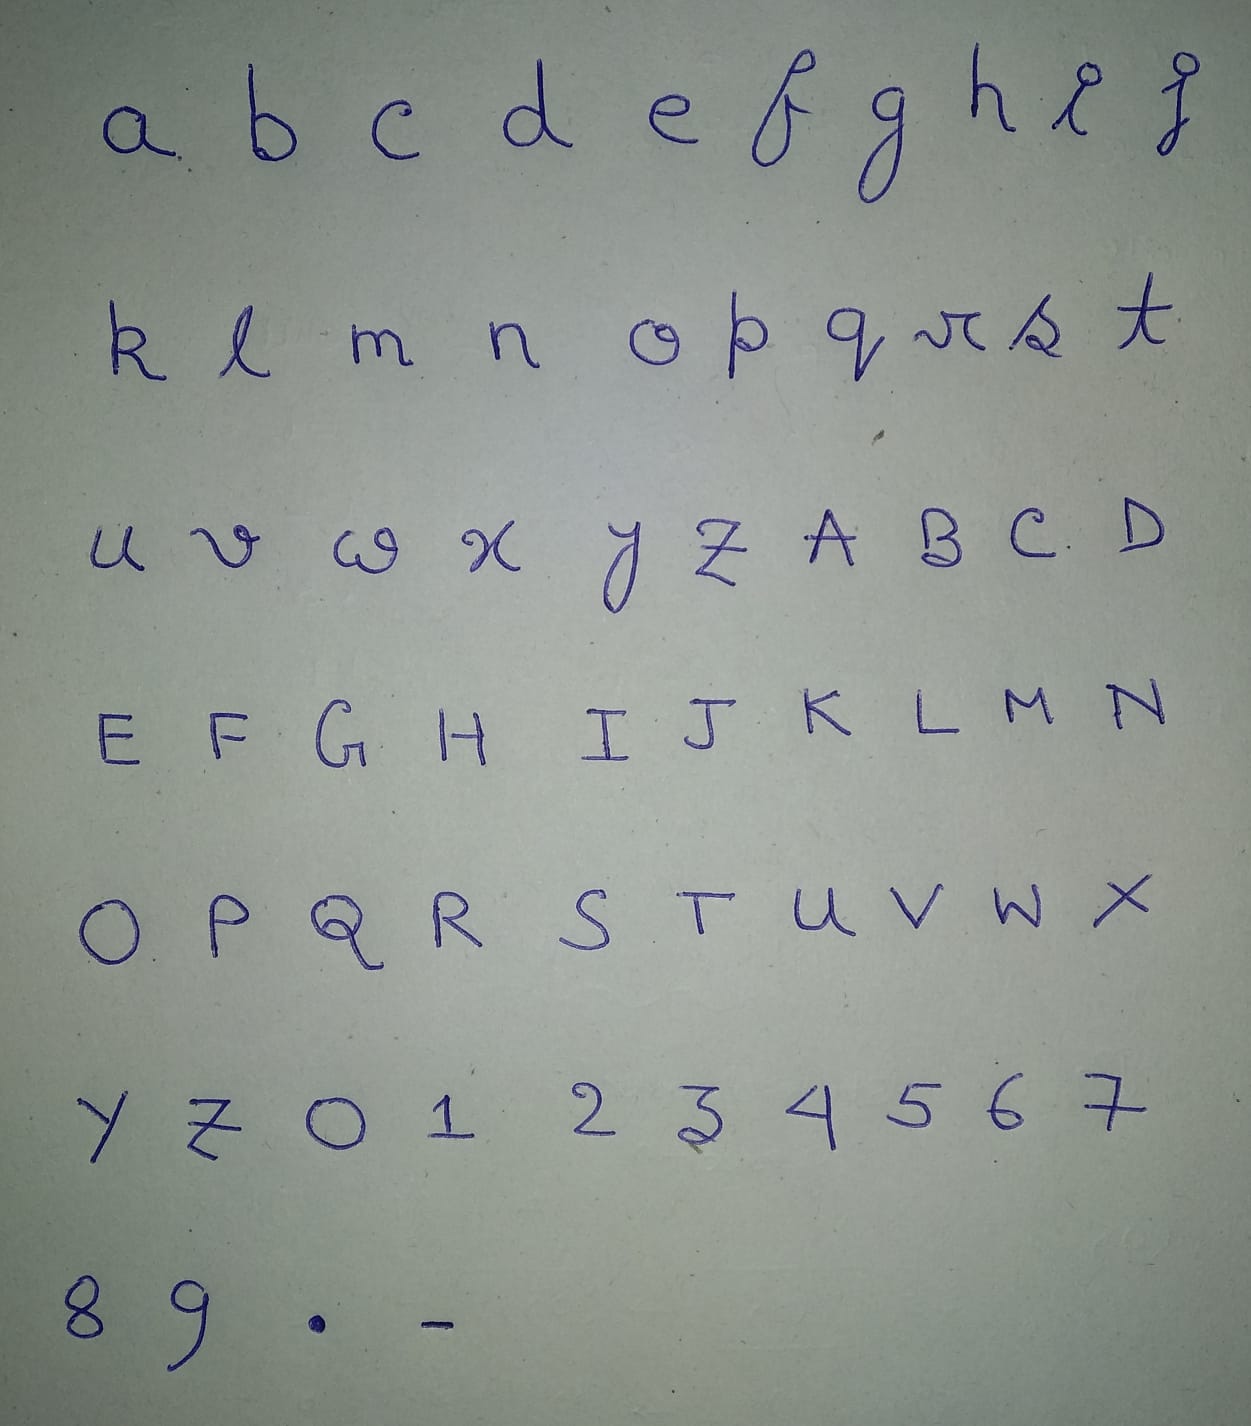 a b c d e f g h i j
k l m n o p q r s t
u v w x y z A B C D
E F G H I J K L M N
O P Q R S T U V W X
Y Z 0 1 2 3 4 5 6 7
8 9 . -